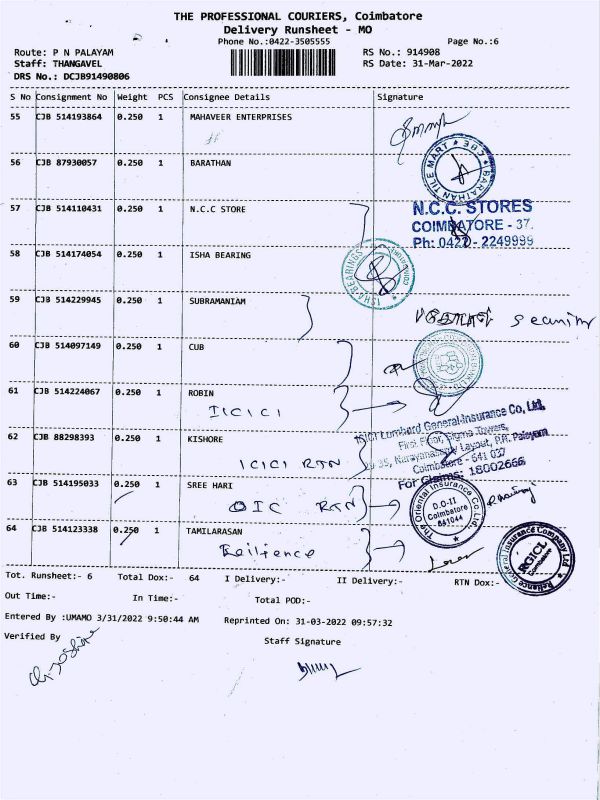 THE PROFESSIONAL COURIERS, Coimbatore
Delivery Runsheet - MO
Phone No.:0422-3505555
Page No.:6
Route: P N PALAYAM
RS No.: 914908
Staff: THANGAVEL
RS Date: 31-Mar-2022
DRS No.: DCJB91490806
S No Consignment No Weight PCS Consignee Details Signature
55 CJB 514193864 0.250 1 MAHAVEER ENTERPRISES
56 CJB 87930057 0.250 1 BARATHAN
BARATHAN TILE MART
57 CJB 514110431 0.250 1 N.C.C STORE
N.C.C. STORES
COIMBATORE - 37.
Ph: 0422 - 2249999
58 CJB 514174054 0.250 1 ISHA BEARING
ISHA BEARINGS
COIMBATORE
59 CJB 514229945 0.250 1 SUBRAMANIAM
60 CJB 514097149 0.250 1 CUB
61 CJB 514224067 0.250 1 ROBIN
ICICI
ICICI Lombard General Insurance Co, Ltd.
First Floor, Sigma Towers,
Layout, P.N. Palayam
Coimbatore - 641 037
For Claims: 18002666
62 CJB 88298393 0.250 1 KISHORE
ICICI RTN
63 CJB 514195033 0.250 1 SREE HARI
OIC RTN
The Oriental Insurance Co. Ltd.
D.O-II
Coimbatore
641044
64 CJB 514123338 0.250 1 TAMILARASAN
Reilience
Reliance General Insurance Company Ltd
RGICL
Coimbatore
Tot. Runsheet:- 6 Total Dox:- 64 I Delivery:- II Delivery:- RTN Dox:-
Out Time:- In Time:- Total POD:-
Entered By :UMAMO 3/31/2022 9:50:44 AM Reprinted On: 31-03-2022 09:57:32
Verified By
Staff Signature